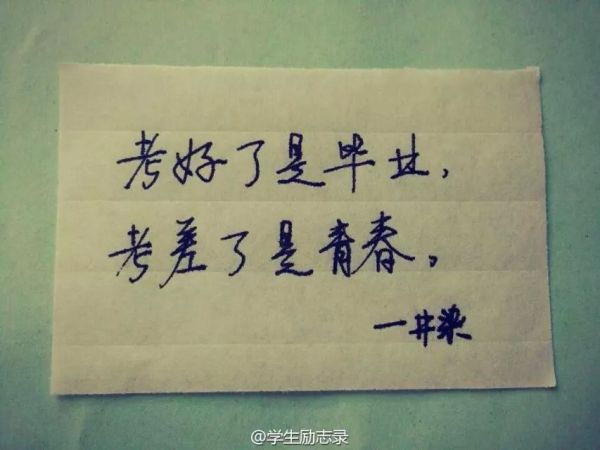 考好了是毕业，
考差了是青春。
一井染
@学生励志录